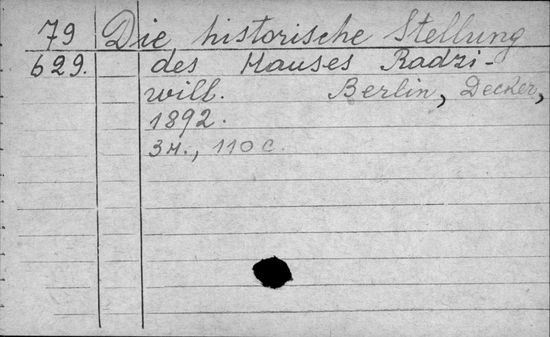 79 Die historische Stellung
629. des Hauses Radzi-
will. Berlin, Decker,
1892.
3н., 110 с.